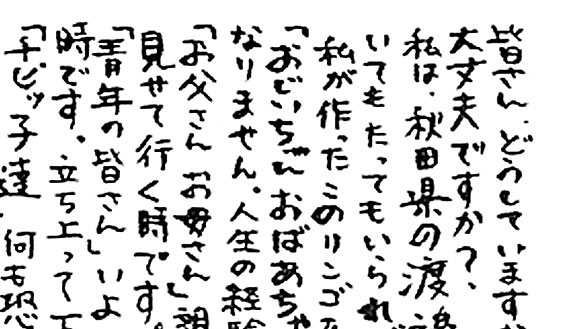 皆さん、どうしています
大丈夫ですか?、
私は、秋田県の渡
いてもたってもいられ
私が作ったこのリンゴ
「おじいちゃん おばあち
なりません。人生の経
「お父さん お母さん」
見せて行く時です。
「青年の皆さん」いよ
時です。立ち上って
「チビッ子達 何も恐